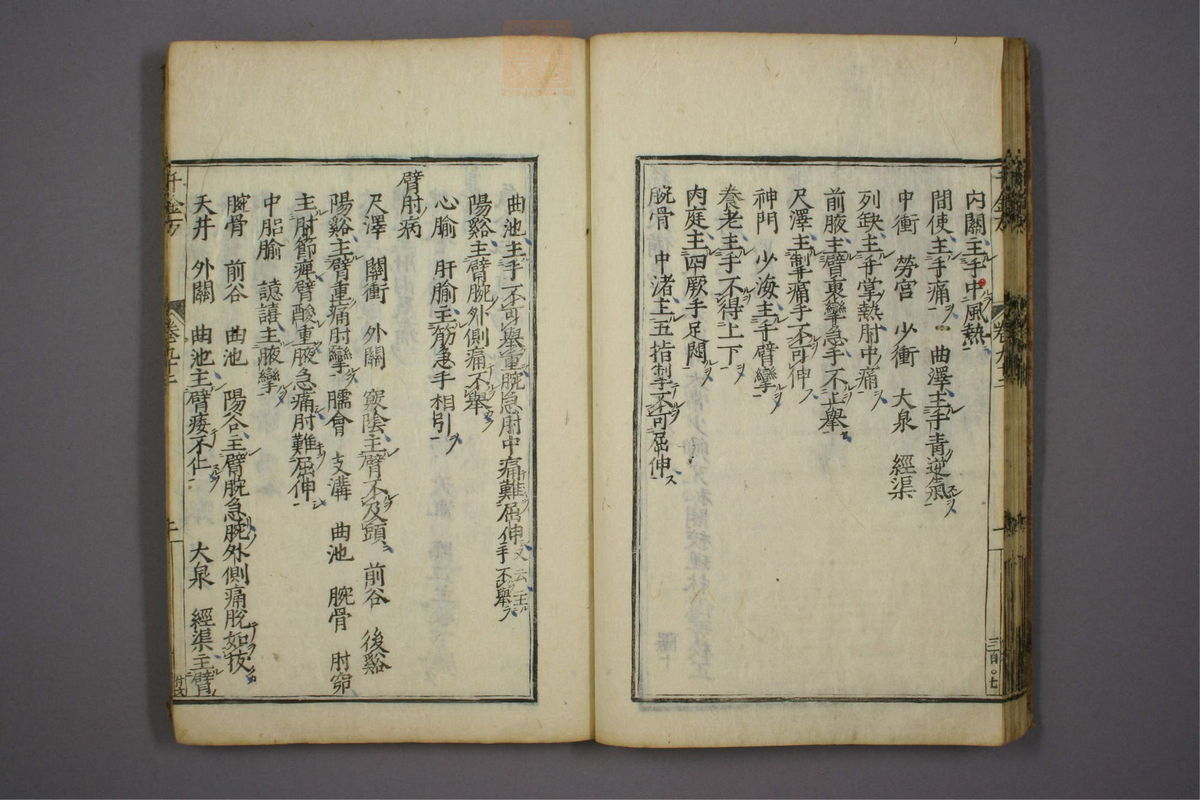 内關主手中風熱
間使主手痛 曲澤主手青逆氣
中衝 勞宮 少衝 大泉 經渠
列缺主手掌熱肘中痛
前腋主臂裏攣急手不上舉
尺澤主掣痛手不可伸
神門 少海主手臂攣
養老主手不得上下
内庭主四厥手足悶
腕骨 中渚主五指掣不可屈伸
三百〇七
千金方 卷九十二
曲池主手不可舉重腕急肘中痛難屈伸又云主手不舉
陽谿主臂腕外側痛不舉
心腧 肝腧主筋急手相引
臂肘病
尺澤 關衝 外關 竅陰主臂不及頭 前谷 後谿
陽谿主臂重痛肘攣 臑會 支溝 曲池 腕骨 肘窌
主肘節痺臂酸重腋急痛肘難屈伸
中胎腧 譩譆主腋攣
腕骨 前谷 曲池 陽谷主臂腕急腕外側痛脫如拔
天井 外關 曲池主臂痿不仁 大泉 經渠主臂